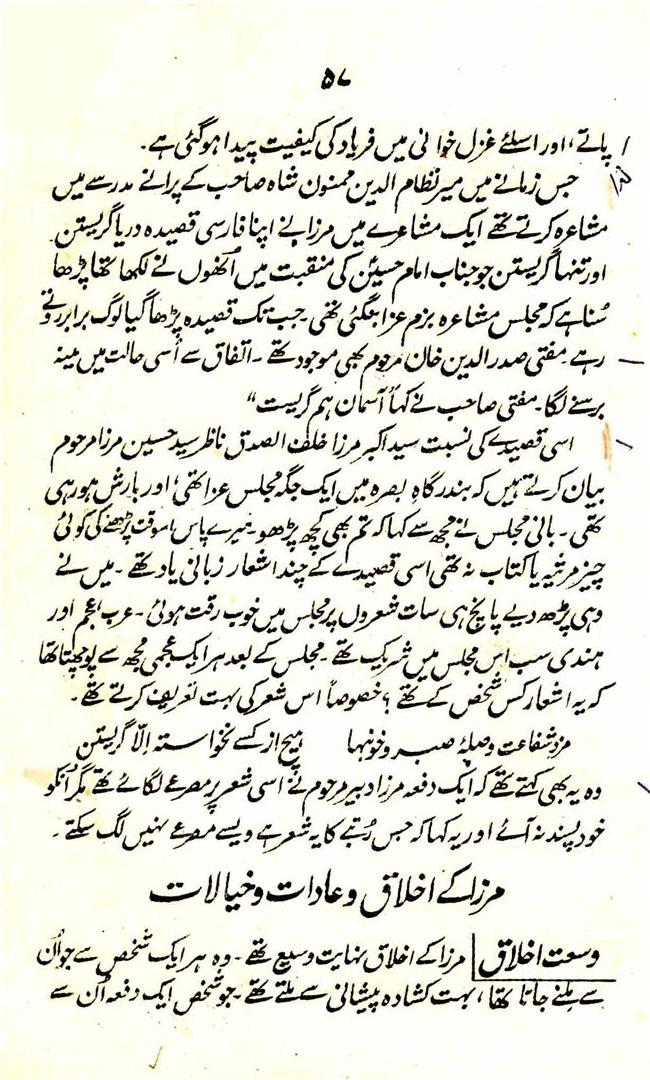 ۵۷
پاتے، اور اسلئے غزل خوانی میں فریاد کی کیفیت پیدا ہوگئی ہے۔
جس زمانے میں میر نظام الدین ممنون شاہ صاحب کے پرانے مدرسے میں
مشاعرہ کرتے تھے ایک مشاعرے میں مرزا نے اپنا فارسی قصیدہ دریا گریستن
اور تنہا گریستن جو جناب امام حسینؑ کی منقبت میں اُنھوں نے لکھا تھا پڑھا
سُنا ہے کہ مجلس مشاعرہ بزم عزا بنگئی تھی۔ جب تک قصیدہ پڑھا گیا لوگ برابر روتے
رہے۔ مفتی صدر الدین خان مرحوم بھی موجود تھے۔ اتفاق سے اُسی حالت میں مینہ
برسنے لگا۔ مفتی صاحب نے کہا "آسمان ہم گریست"
اسی قصیدے کی نسبت سید اکبر مرزا خلف الصدق ناظر سید حسین مرزا مرحوم
بیان کرتے ہیں کہ بندر گاہ بصرہ میں ایک جگہ مجلس عزا تھی؛ اور بارش ہو رہی
تھی۔ بانی مجلس نے مجھ سے کہا کہ تم بھی کچھ پڑھو۔ میرے پاس اسوقت پڑھنے کی کوئی
چیز مرثیہ یا کتاب نہ تھی اسی قصیدے کے چند اشعار زبانی یاد تھے۔ میں نے
وہی پڑھ دیے پانچ ہی سات شعروں پر مجلس میں خوب رقت ہوئی۔ عرب، عجم اور
ہندی سب اس مجلس میں شریک تھے۔ مجلس کے بعد ہر ایک عجمی مجھ سے پوچھتا تھا
کہ یہ اشعار کس شخص کے تھے؟ خصوصاً اس شعر کی بہت تعریف کرتے تھے۔
مزد شفاعت و صلۂ صبر و خونبہا ہیچ از کسے نخواستہ اِلّا گریستن
وہ یہ بھی کہتے تھے کہ ایک دفعہ مرزا دبیر مرحوم نے اسی شعر پر مصرعے لگائے تھے مگر اُنکو
خود پسند نہ آئے اور یہ کہا کہ جس رُتبے کا یہ شعر ہے ویسے مصرعے نہیں لگ سکتے۔
مرزا کے اخلاق و عادات و خیالات
وسعت اخلاق مرزا کے اخلاق نہایت وسیع تھے۔ وہ ہر ایک شخص سے جو اُن
سے ملنے جاتا تھا، بہت کشادہ پیشانی سے ملتے تھے۔ جو شخص ایک دفعہ اُن سے